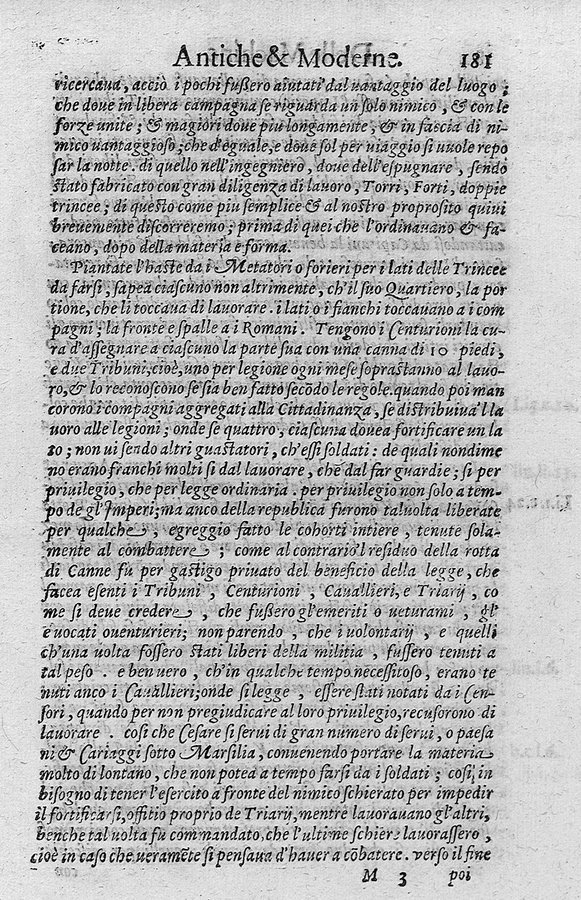 Antiche & Moderne. 181
ricercava, acciò i pochi fußero aiutati dal vantaggio del luogo;
che dove in libera campagna se riguarda un solo nimico, & con le
forze unite; & magiori dove piu longamente, & in fascia di ni-
mico vantaggioso; che d'eguale, e dove sol per viaggio si vuole repo
sar la notte. di quello nell'ingegniero, doue dell'espugnare, sendo
stato fabricato con gran diligenza di lavoro, Torri, Forti, doppie
trincee; di questo come piu semplice & al nostro proprosito quivi
brevemente discorreremo; prima di quei che l'ordinavano & fa-
ceano, dopo della materia e forma.
Piantate l'haste da i Metatori o forieri per i lati delle Trincee
da farsi, sapea ciascuno non altrimente, ch'il suo Quartiero, la por
tione, che li toccava di lavorare. i lati o i fianchi toccauano a i com
pagni; la fronte e spalle a i Romani. Tengono i Centurioni la cu-
ra d'assegnare a ciascuno la parte sua con una canna di 10 piedi,
e due Tribuni, cioè, uno per legione ogni mese soprastanno al lavo-
ro, & lo reconoscono se sia ben fatto secōdo le regole. quando poi man
corono i compagni aggregati alla Cittadinanza, se distribuiva'l la
uoro alle legioni; onde se quattro, ciascuna douea fortificare un la
to; non ui sendo altri guastatori, ch'essi soldati: de quali nondime
no erano franchi molti si dal lavorare, che dal far guardie; si per
privilegio, che per legge ordinaria. per privilegio non solo a tem-
po de gl'Imperi; ma anco della republica furono taluolta liberate
per qualche, egreggio fatto le cohorti intiere, tenute sola-
mente al combattere; come al contrario l residuo della rotta
di Canne fu per gastigo privato del beneficio della legge, che
facea esenti i Tribuni, Centurioni, Cavallieri, e Triarij, co
me si deve credere, che fußero gl'emeriti o veturami, gl'
evocati o venturieri; non parendo, che i volontarij, e quelli
ch'una volta fossero stati liberi della militia, fussero tenuti a
tal peso. e ben vero, ch'in qualche tempo necessitoso, erano te
nuti anco i Cavallieri; onde si legge, essere stati notati da i Cen-
sori, quando per non pregiudicare al loro privilegio, recusorono di
lauorare. così che Cesare si serui di gran numero di serui, o paesa
ni & Cariaggi sotto Marsilia, convenendo portare la materia
molto di lontano, che non potea a tempo farsi da i soldati; così, in
bisogno di tener l'esercito a fronte del nimico schierato per impedir
il fortificarsi, offitio proprio de Triarij, mentre lavoravano gl'altri,
benche tal volta fu commandato, che l'ultime schiere lavorassero,
cioè in caso che veramēte si pensava d'hauer a cōbatere. verso il fine
M 3 poi